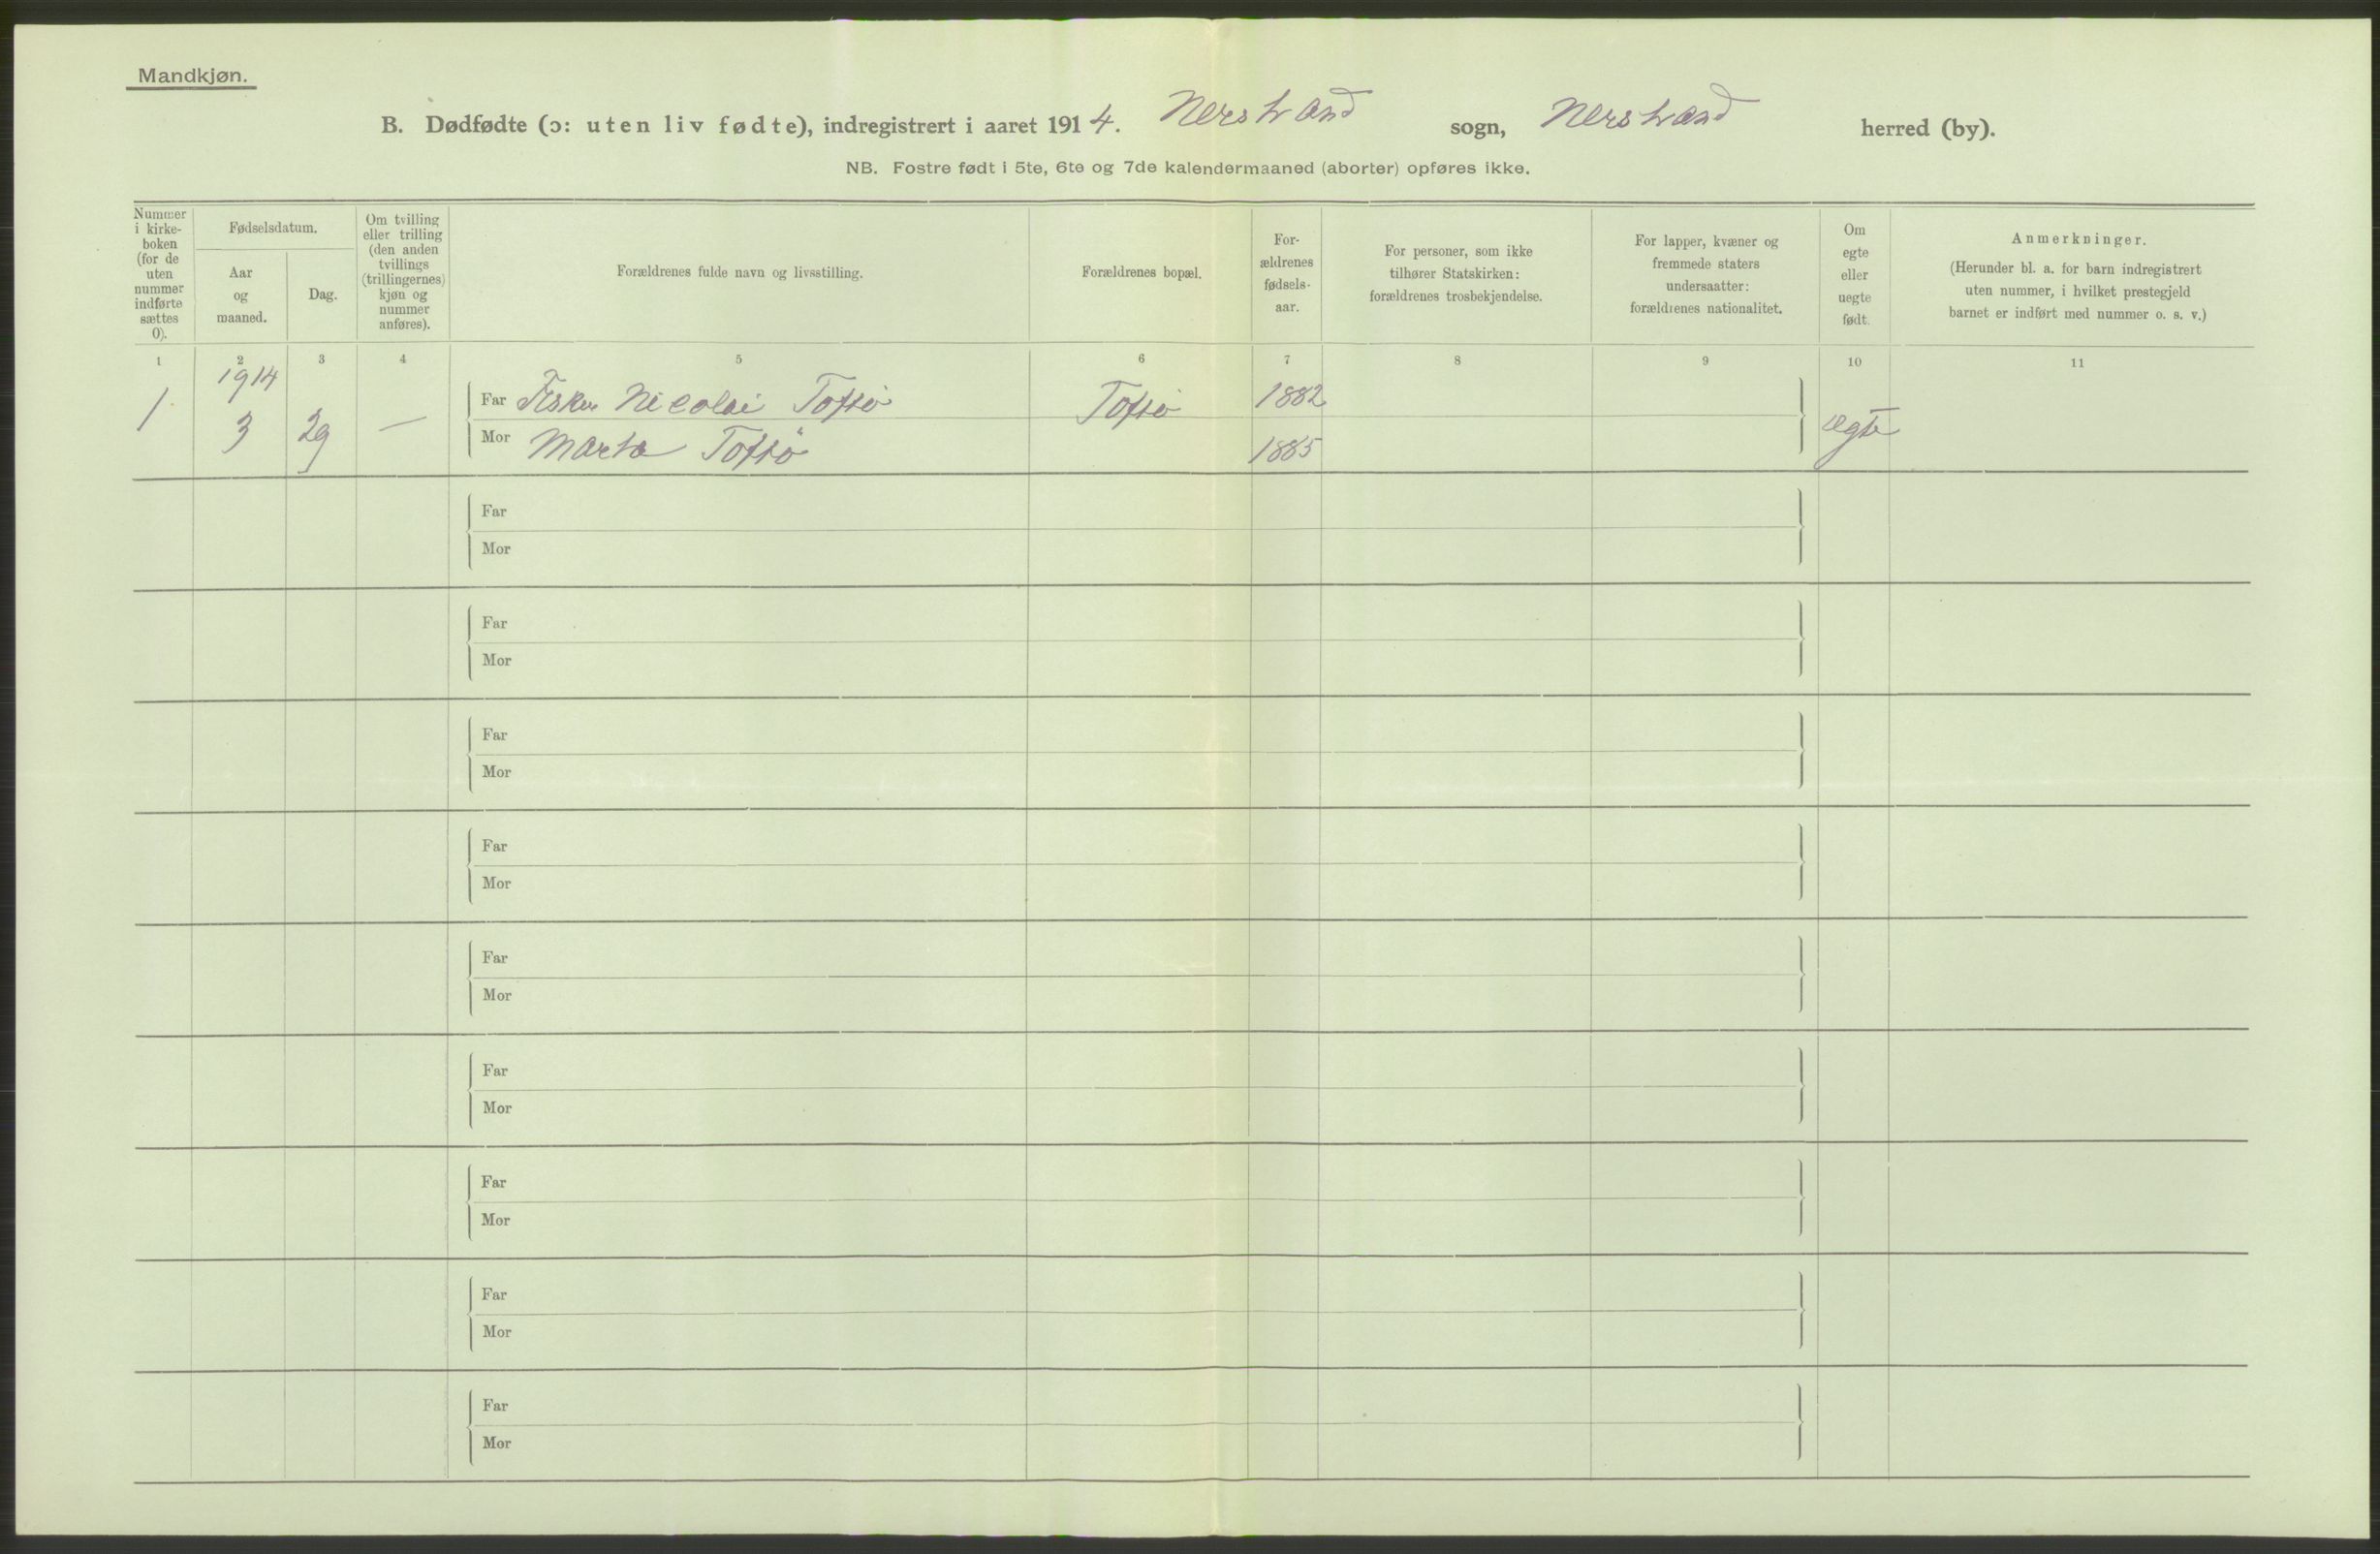 Mandkjøn.
B. Dødfødte (ɔ: uten liv fødte), indregistrert i aaret 1914. Nerstrand sogn, Nerstrand herred (by).
NB. Fostre født i 5te, 6te og 7de kalendermaaned (aborter) opføres ikke.
Nummer
i kirke-
boken
(for de
uten
nummer
indførte
sættes
0).
Fødselsdatum.
Aar
og
maaned.
Dag.
Om tvilling
eller trilling
(den anden
tvillings
(trillingernes)
kjøn og
nummer
anføres).
Forældrenes fulde navn og livsstilling.
Forældrenes bopæl.
For-
ældrenes
fødsels-
aar.
For personer, som ikke
tilhører Statskirken:
forældrenes trosbekjendelse.
For lapper, kvæner og
fremmede staters
undersaatter:
forældrenes nationalitet.
Om
egte
eller
uegte
født.
Anmerkninger.
(Herunder bl. a. for barn indregistrert
uten nummer, i hvilket prestegjeld
barnet er indført med nummer o. s. v.)
1 2 3 4 5 6 7 8 9 10 11
1914
Far Fisker Nicolai Toftø Toftø 1882
1 3 29 — ægte
Mor Marta Toftø 1885
Far
Mor
Far
Mor
Far
Mor
Far
Mor
Far
Mor
Far
Mor
Far
Mor
Far
Mor
Far
Mor